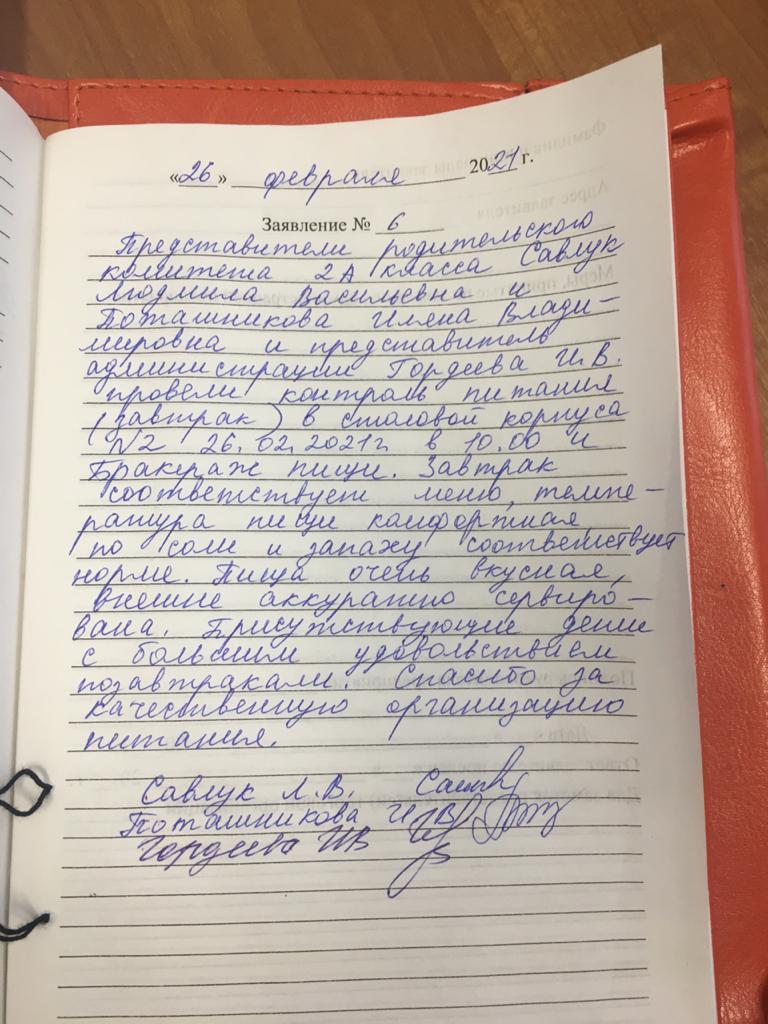 «26» февраля 2021 г.
Заявление № 6
Представители родительского
комитета 2А класса Савлук
Людмила Васильевна и
Поташникова Илена Влади-
мировна и представитель
администрации Гордеева И.В.
провели контроль питания
(завтрак) в столовой корпуса
N2 26.02.2021г. в 10.00 и
Бракераж пищи. Завтрак
соответствует меню, темпе-
ратура пищи комфортная,
по соли и запаху соответствует
норме. Пища очень вкусная,
внешне аккуратно сервиро-
вана. Присутствующие дети
с большим удовольствием
позавтракали. Спасибо за
качественную организацию
питания.
Савлук Л.В.
Поташникова И.В.
Гордеева ИВ